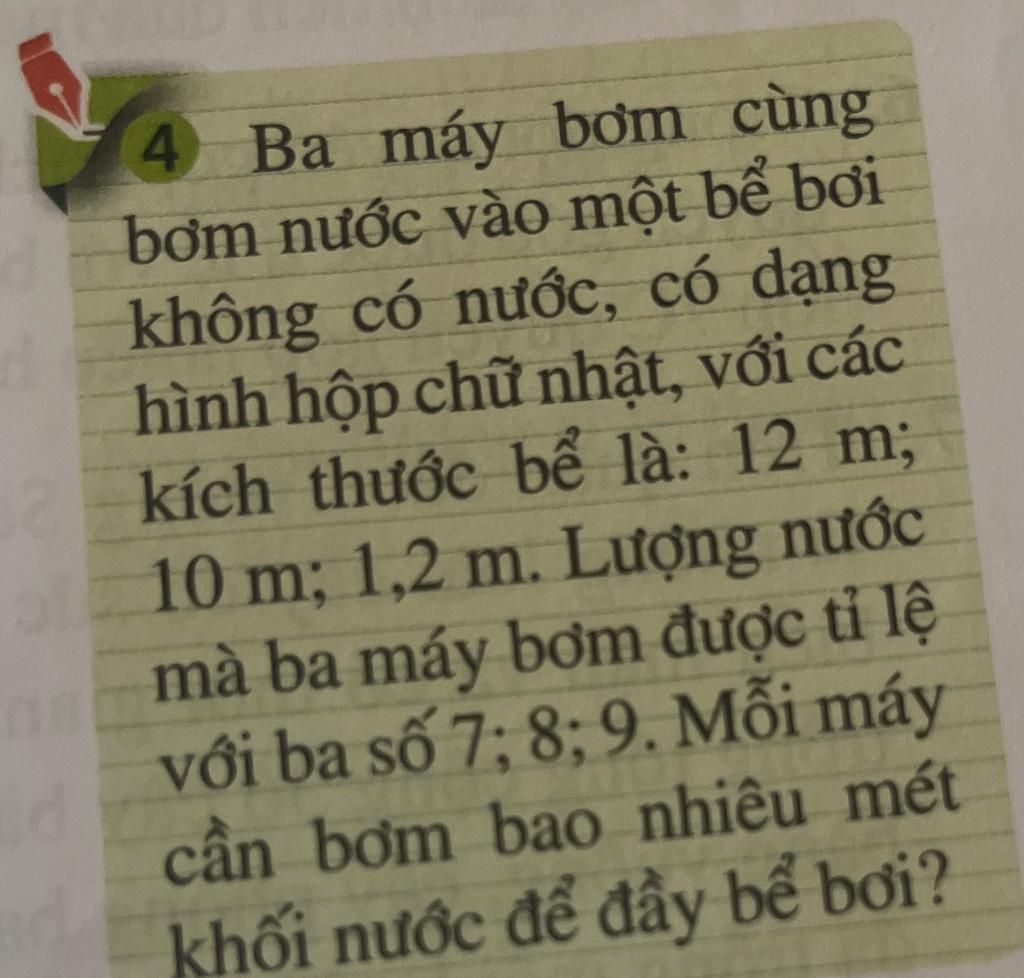 4 Ba máy bơm cùng
bơm nước vào một bể bơi
không có nước, có dạng
hình hộp chữ nhật, với các
kích thước bể là: 12 m;
10 m; 1,2 m. Lượng nước
mà ba máy bơm được tỉ lệ
với ba số 7; 8; 9. Mỗi máy
cần bơm bao nhiêu mét
khối nước để đầy bể bơi?